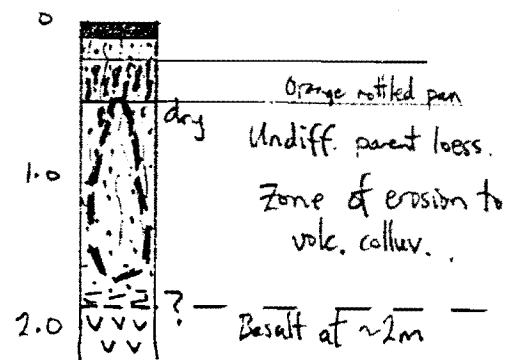 0
Orange mottled pan
dry
Undiff. parent loess.
1.0
Zone of erosion to
volc. colluv.
?
2.0
Basalt at ~2m